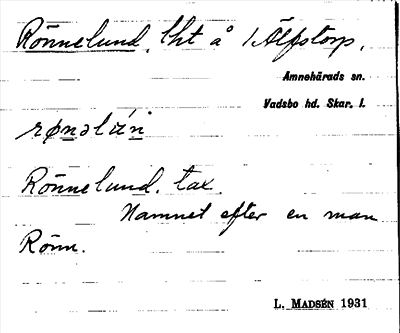 Rönnelund, lht å /Älpstorp,
Amnehärads sn.
Vadsbo hd. Skar. l.
Rönnelund. tax.
Namnet efter en man
Rönn.
L. MADSÉN 1931